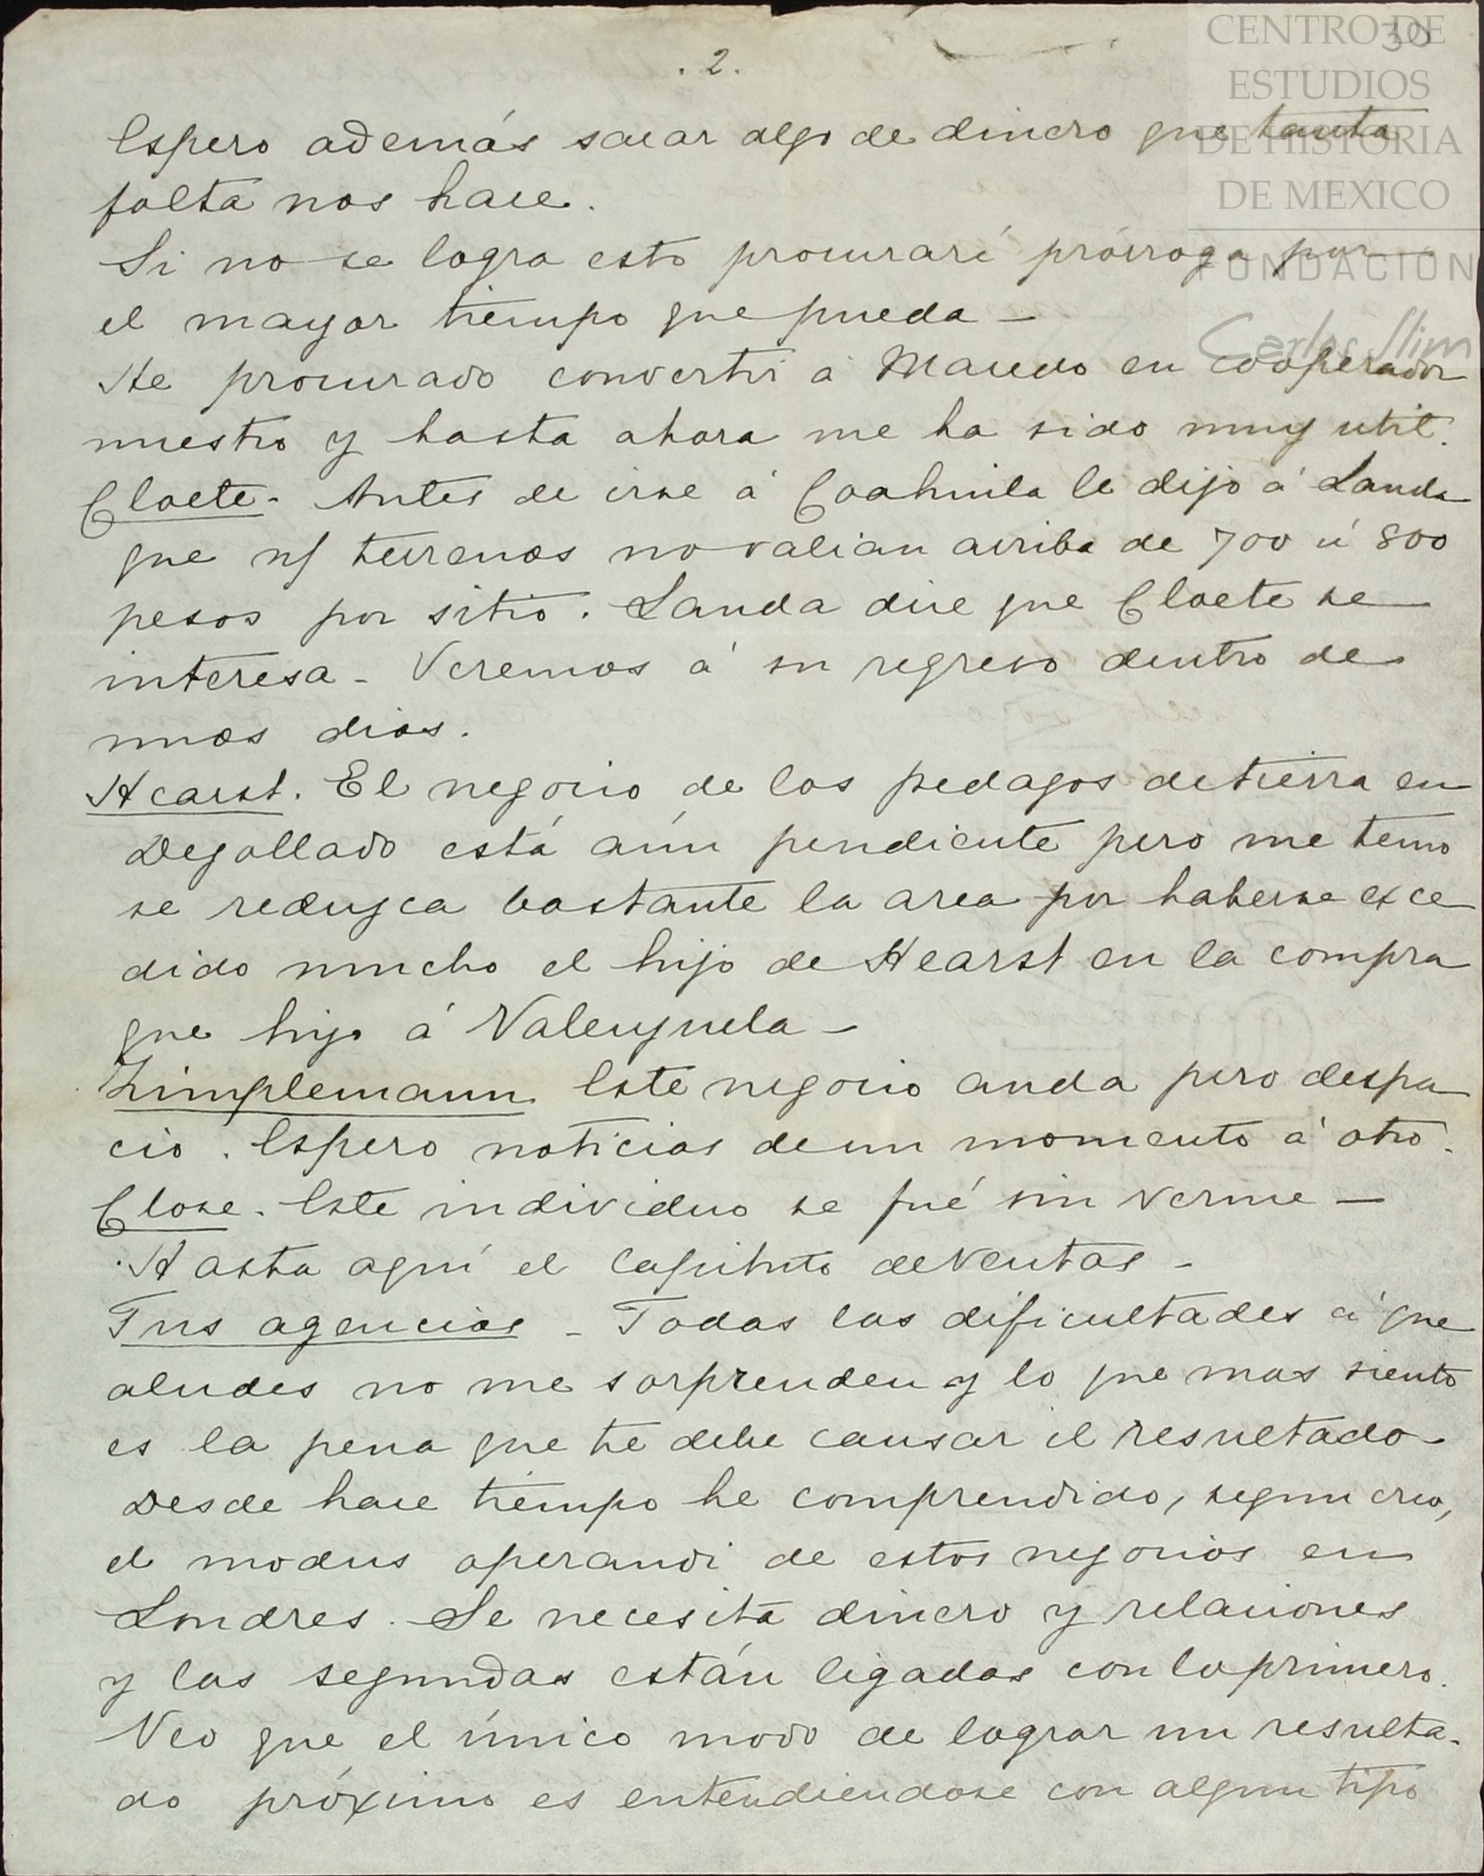 CENTRO DE
ESTUDIOS
DE HISTORIA
DE MEXICO
FUNDACIÓN
Carlos Slim
30
. 2 .
Espero además sacar algo de dinero que tanta
falta nos hace.
Si no se logra esto procuraré prórroga por
el mayor tiempo que pueda —
He procurado convertir á Macedo en cooperador
nuestro y hasta ahora me ha sido muy util.
Cloete - Antes de irse á Coahuila le dijo á Landa
que n/ terrenos no valian arriba de 700 ú 800
pesos por sitio. Landa dice que Cloete se
interesa - Veremos á su regreso dentro de
unos dias.
Hearst. El negocio de los pedazos de tierra en
Degollado está aún pendiente pero me temo
se reduzca bastante la area por haberse exce
dido mucho el hijo de Hearst en la compra
que hizo á Valenzuela —
Zimplemann. Este negocio anda pero despa
cio. Espero noticias de un momento á otro.
Close. Este individuo se fué sin verme —
Hasta aquí el capitulo de ventas -
Tus agencias - Todas las dificultades á que
aludes no me sorprenden y lo que mas siento
es la pena que te debe causar el resultado
Desde hace tiempo he comprendido, segun creo,
el modus operandi de estos negocios en
Londres. Se necesita dinero y relaciones
y las segundas están ligadas con lo primero.
Veo que el único modo de lograr un resulta-
do próximo es entendiendose con algun tipo